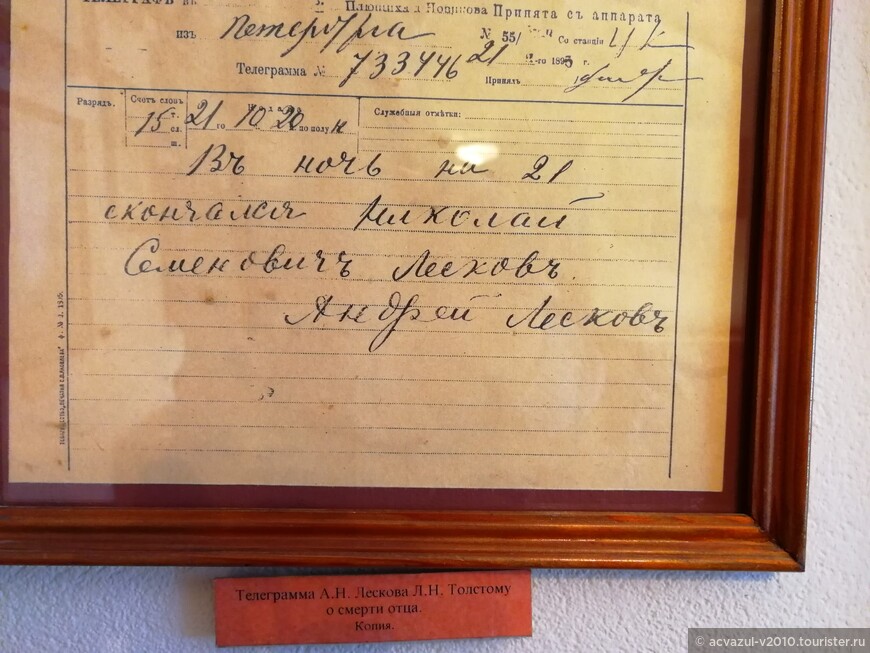 Принята съ аппарата
изъ Петербурга № 55/ Со станціи
Телеграмма № 733446 21 -го 189 г. Принялъ
Разрядъ. Счетъ словъ Подана Служебныя отмѣтки:
15 т. сл. ш. 21 го 10 20 по полун
Въ ночь на 21
скончался Николай
Семеновичъ Лесковъ
Андрей Лесковъ
Телеграмма А.Н. Лескова Л.Н. Толстому
о смерти отца.
Копия.
© acvazul-v2010.tourister.ru